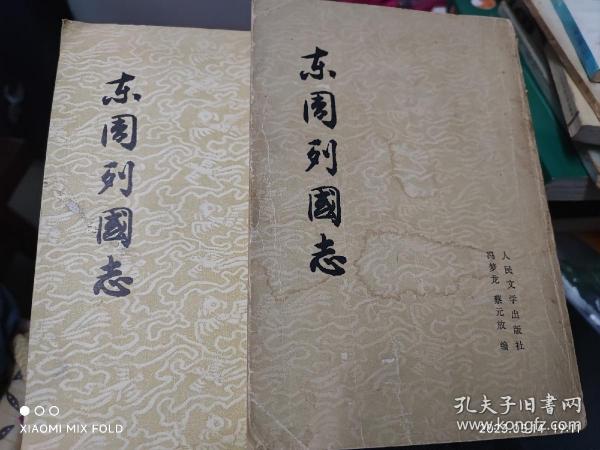 东周列國志
东周列國志
冯梦龙 蔡元放 编
人民文学出版社
XIAOMI MIX FOLD
孔夫子旧书网
www.kongfz.com
2023.05.14 19:11